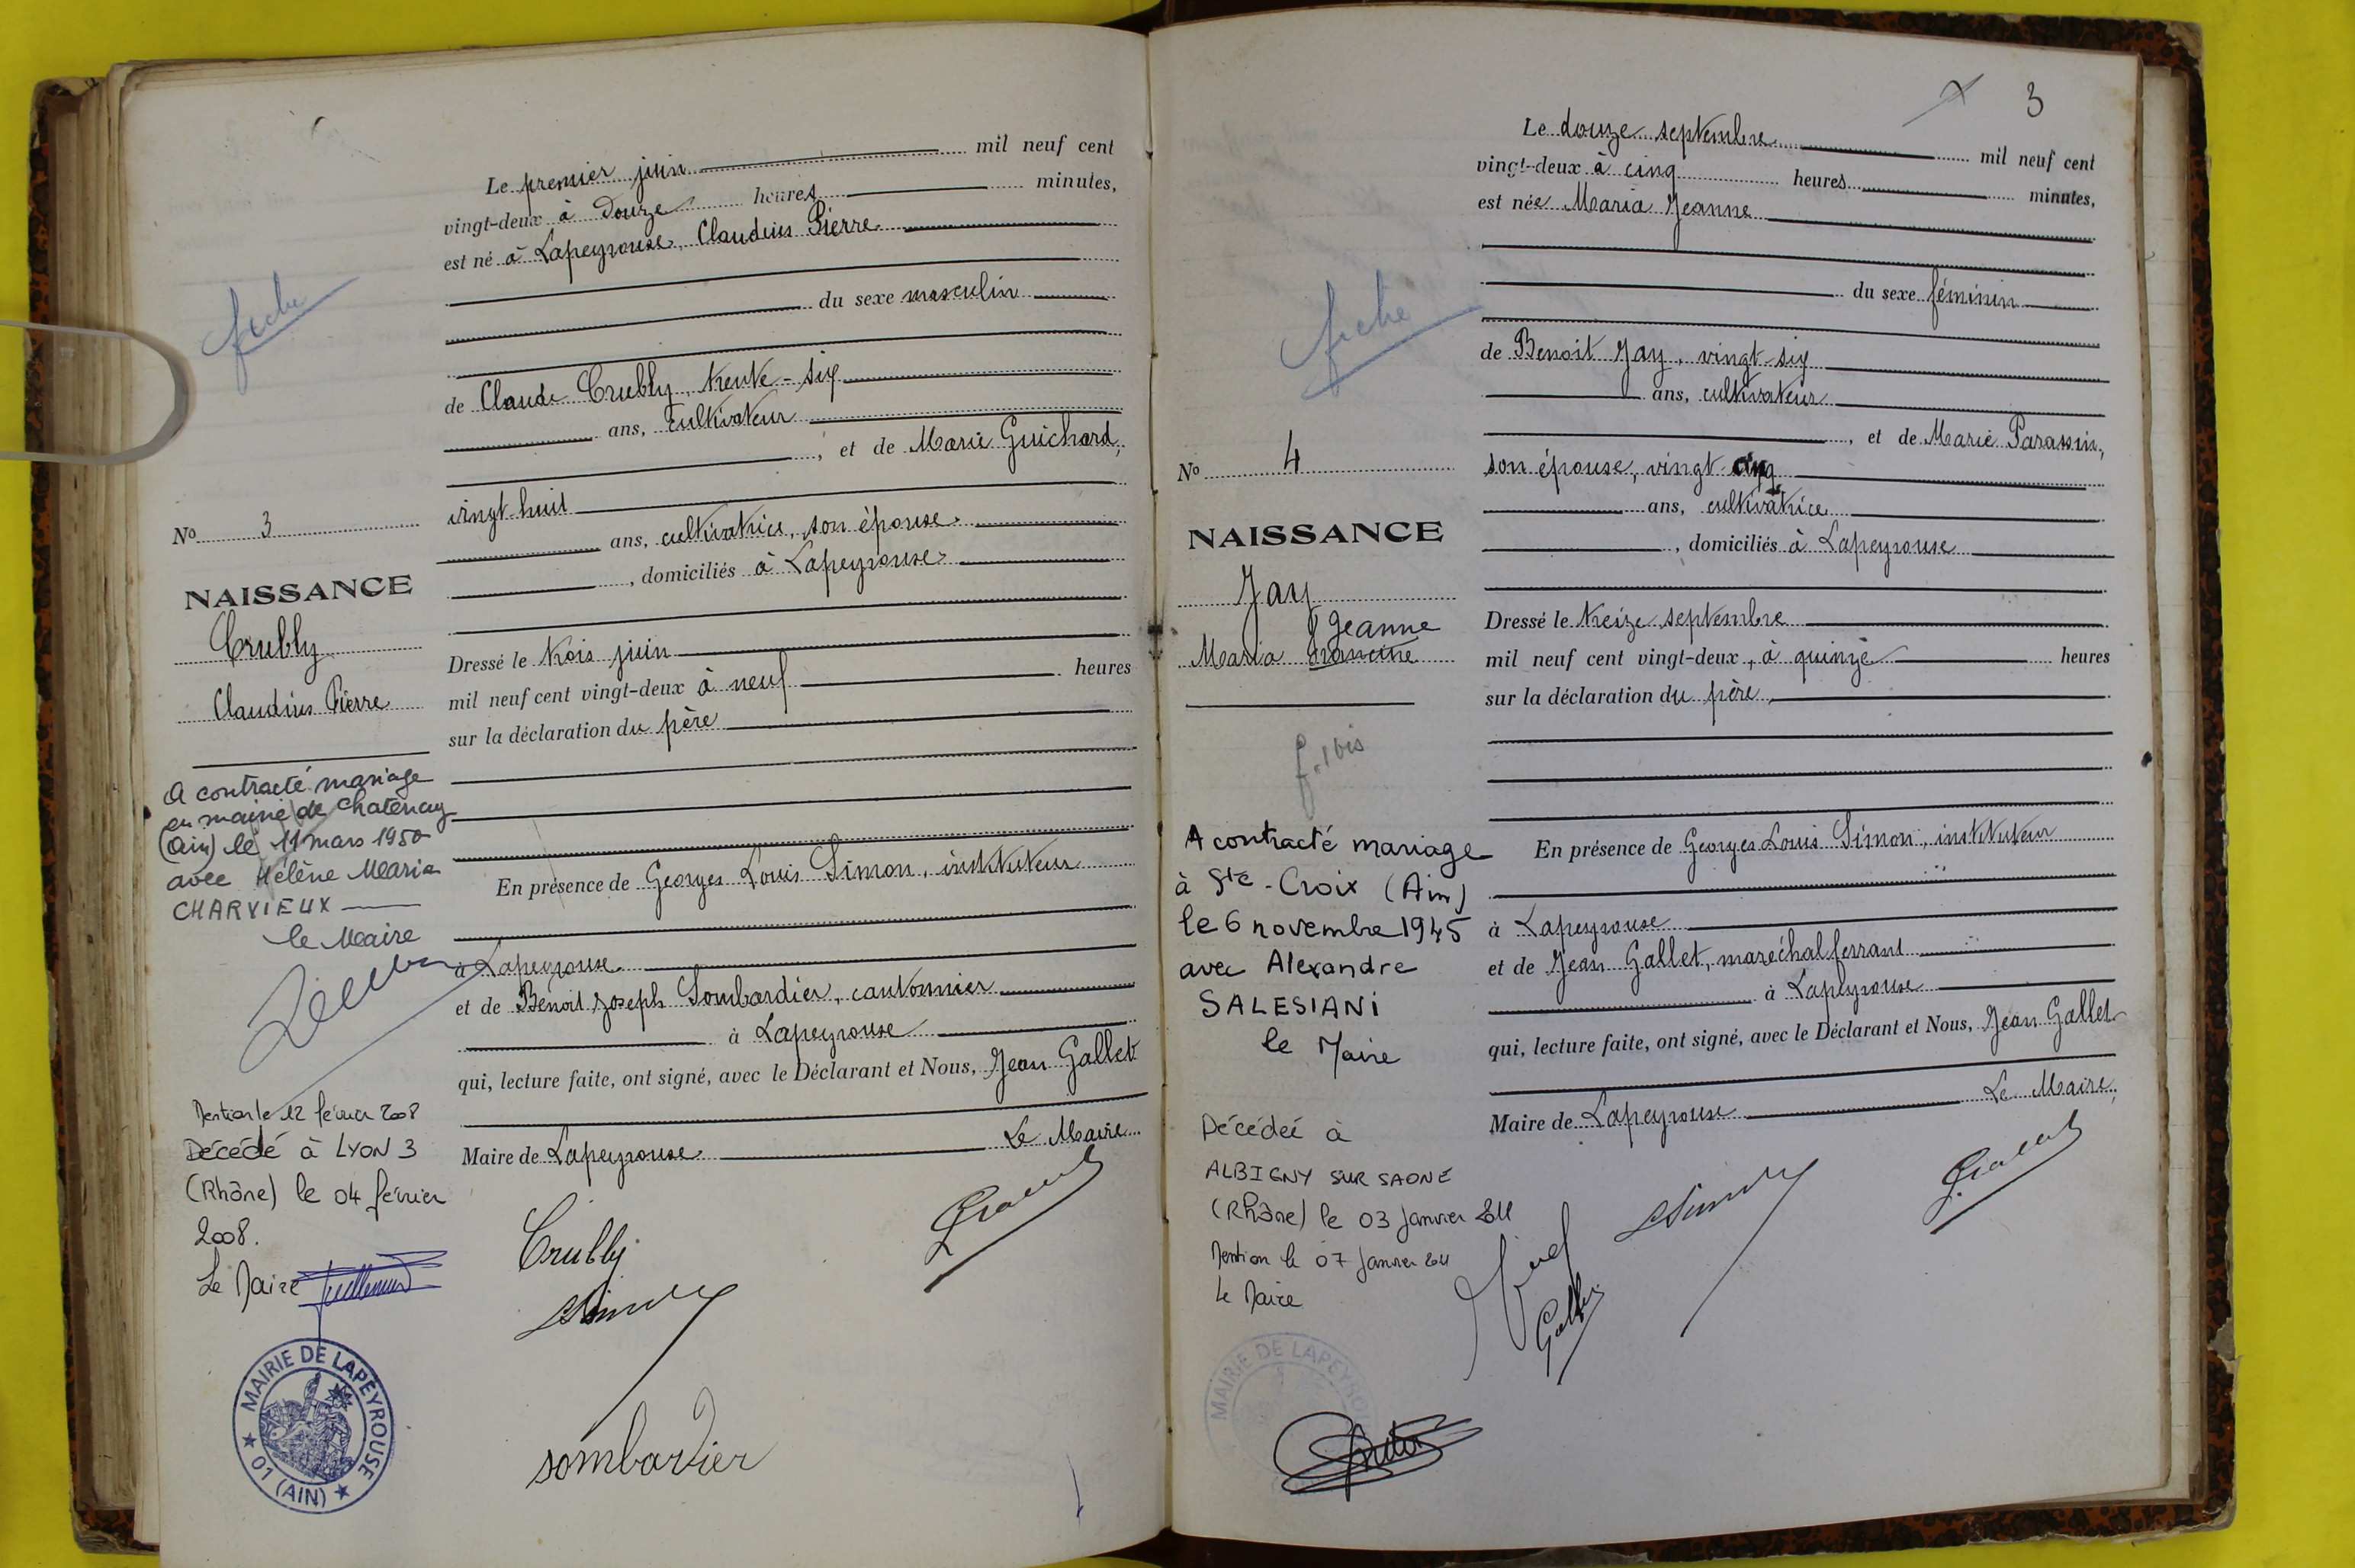 fiche
No 3
NAISSANCE
Crubly
Claudius Pierre
A contracté mariage
en mairie de Chatenay
(Ain) le 11 mars 1950
avec Hélène Maria
CHARVIEUX
le Maire
Mention le 12 février 2008
Décédé à LYON 3
(Rhône) le 04 février
2008.
Le Maire
MAIRIE DE LAPEYROUSE
01 (AIN)
Le premier juin mil neuf cent
vingt-deux à douze heures minutes,
est né à Lapeyrouse, Claudius Pierre
du sexe masculin
de Claude Crubly, trente-six
ans, cultivateur
, et de Marie Guichard,
vingt-huit
ans, cultivatrice, son épouse
, domiciliés à Lapeyrouse
Dressé le trois juin
mil neuf cent vingt-deux à neuf heures
sur la déclaration du père
En présence de Georges Louis Simon, instituteur
à Lapeyrouse
et de Benoit Joseph Sombardier, cantonnier
à Lapeyrouse
qui, lecture faite, ont signé, avec le Déclarant et Nous, Jean Gallet
Maire de Lapeyrouse Le Maire
Crubly
sombardier
3
fiche
No 4
NAISSANCE
Jay
Jeanne
Maria Francine
f. 1 bis
A contracté mariage
à Ste-Croix (Ain)
le 6 novembre 1945
avec Alexandre
SALESIANI
le Maire
Décédée à
ALBIGNY SUR SAONE
(Rhône) le 03 janvier 2011
Mention le 07 janvier 2011
Le Maire
MAIRIE DE LAPEYROU
Le douze septembre mil neuf cent
vingt-deux à cinq heures minutes,
est née Maria Jeanne
du sexe féminin
de Benoit Jay, vingt-six
ans, cultivateur
, et de Marie
son épouse, vingt-cinq
ans, cultivatrice
, domiciliés à Lapeyrouse
Dressé le treize septembre
mil neuf cent vingt-deux, à quinze heures
sur la déclaration du père
En présence de Georges Louis Simon, instituteur
à Lapeyrouse
et de Jean Gallet, maréchal ferrant
à Lapeyrouse
qui, lecture faite, ont signé, avec le Déclarant et Nous, Jean Gallet
Maire de Lapeyrouse Le Maire,